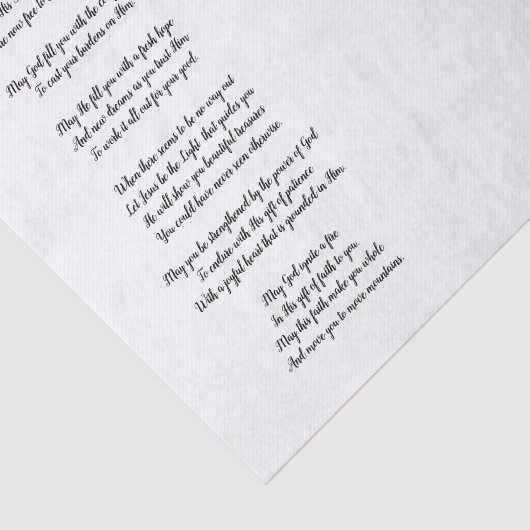 His
now free to
May God fill you with the
To cast your burdens on Him.
May He fill you with a fresh hope
And new dreams as you trust Him
To work it all out for your good.
When there seems to be no way out
Let Jesus be the Light that guides you
He will show you beautiful treasures
You could have never seen otherwise.
May you be strengthened by the power of God
To endure with His gift of patience
With a joyful heart that is grounded in Him.
May God ignite a fire
In His gift of faith to you.
May this faith make you whole
And move you to move mountains.